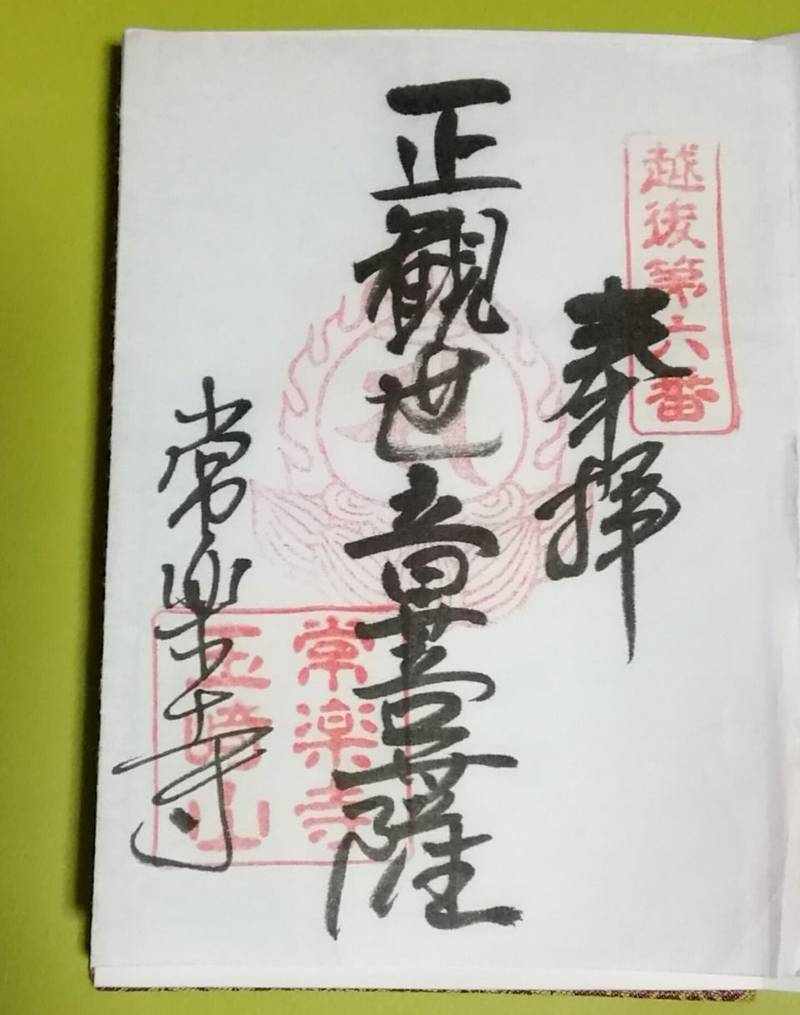 越後第六番
奉拝
正観世音菩薩
常楽寺
常楽寺
玉﨑山